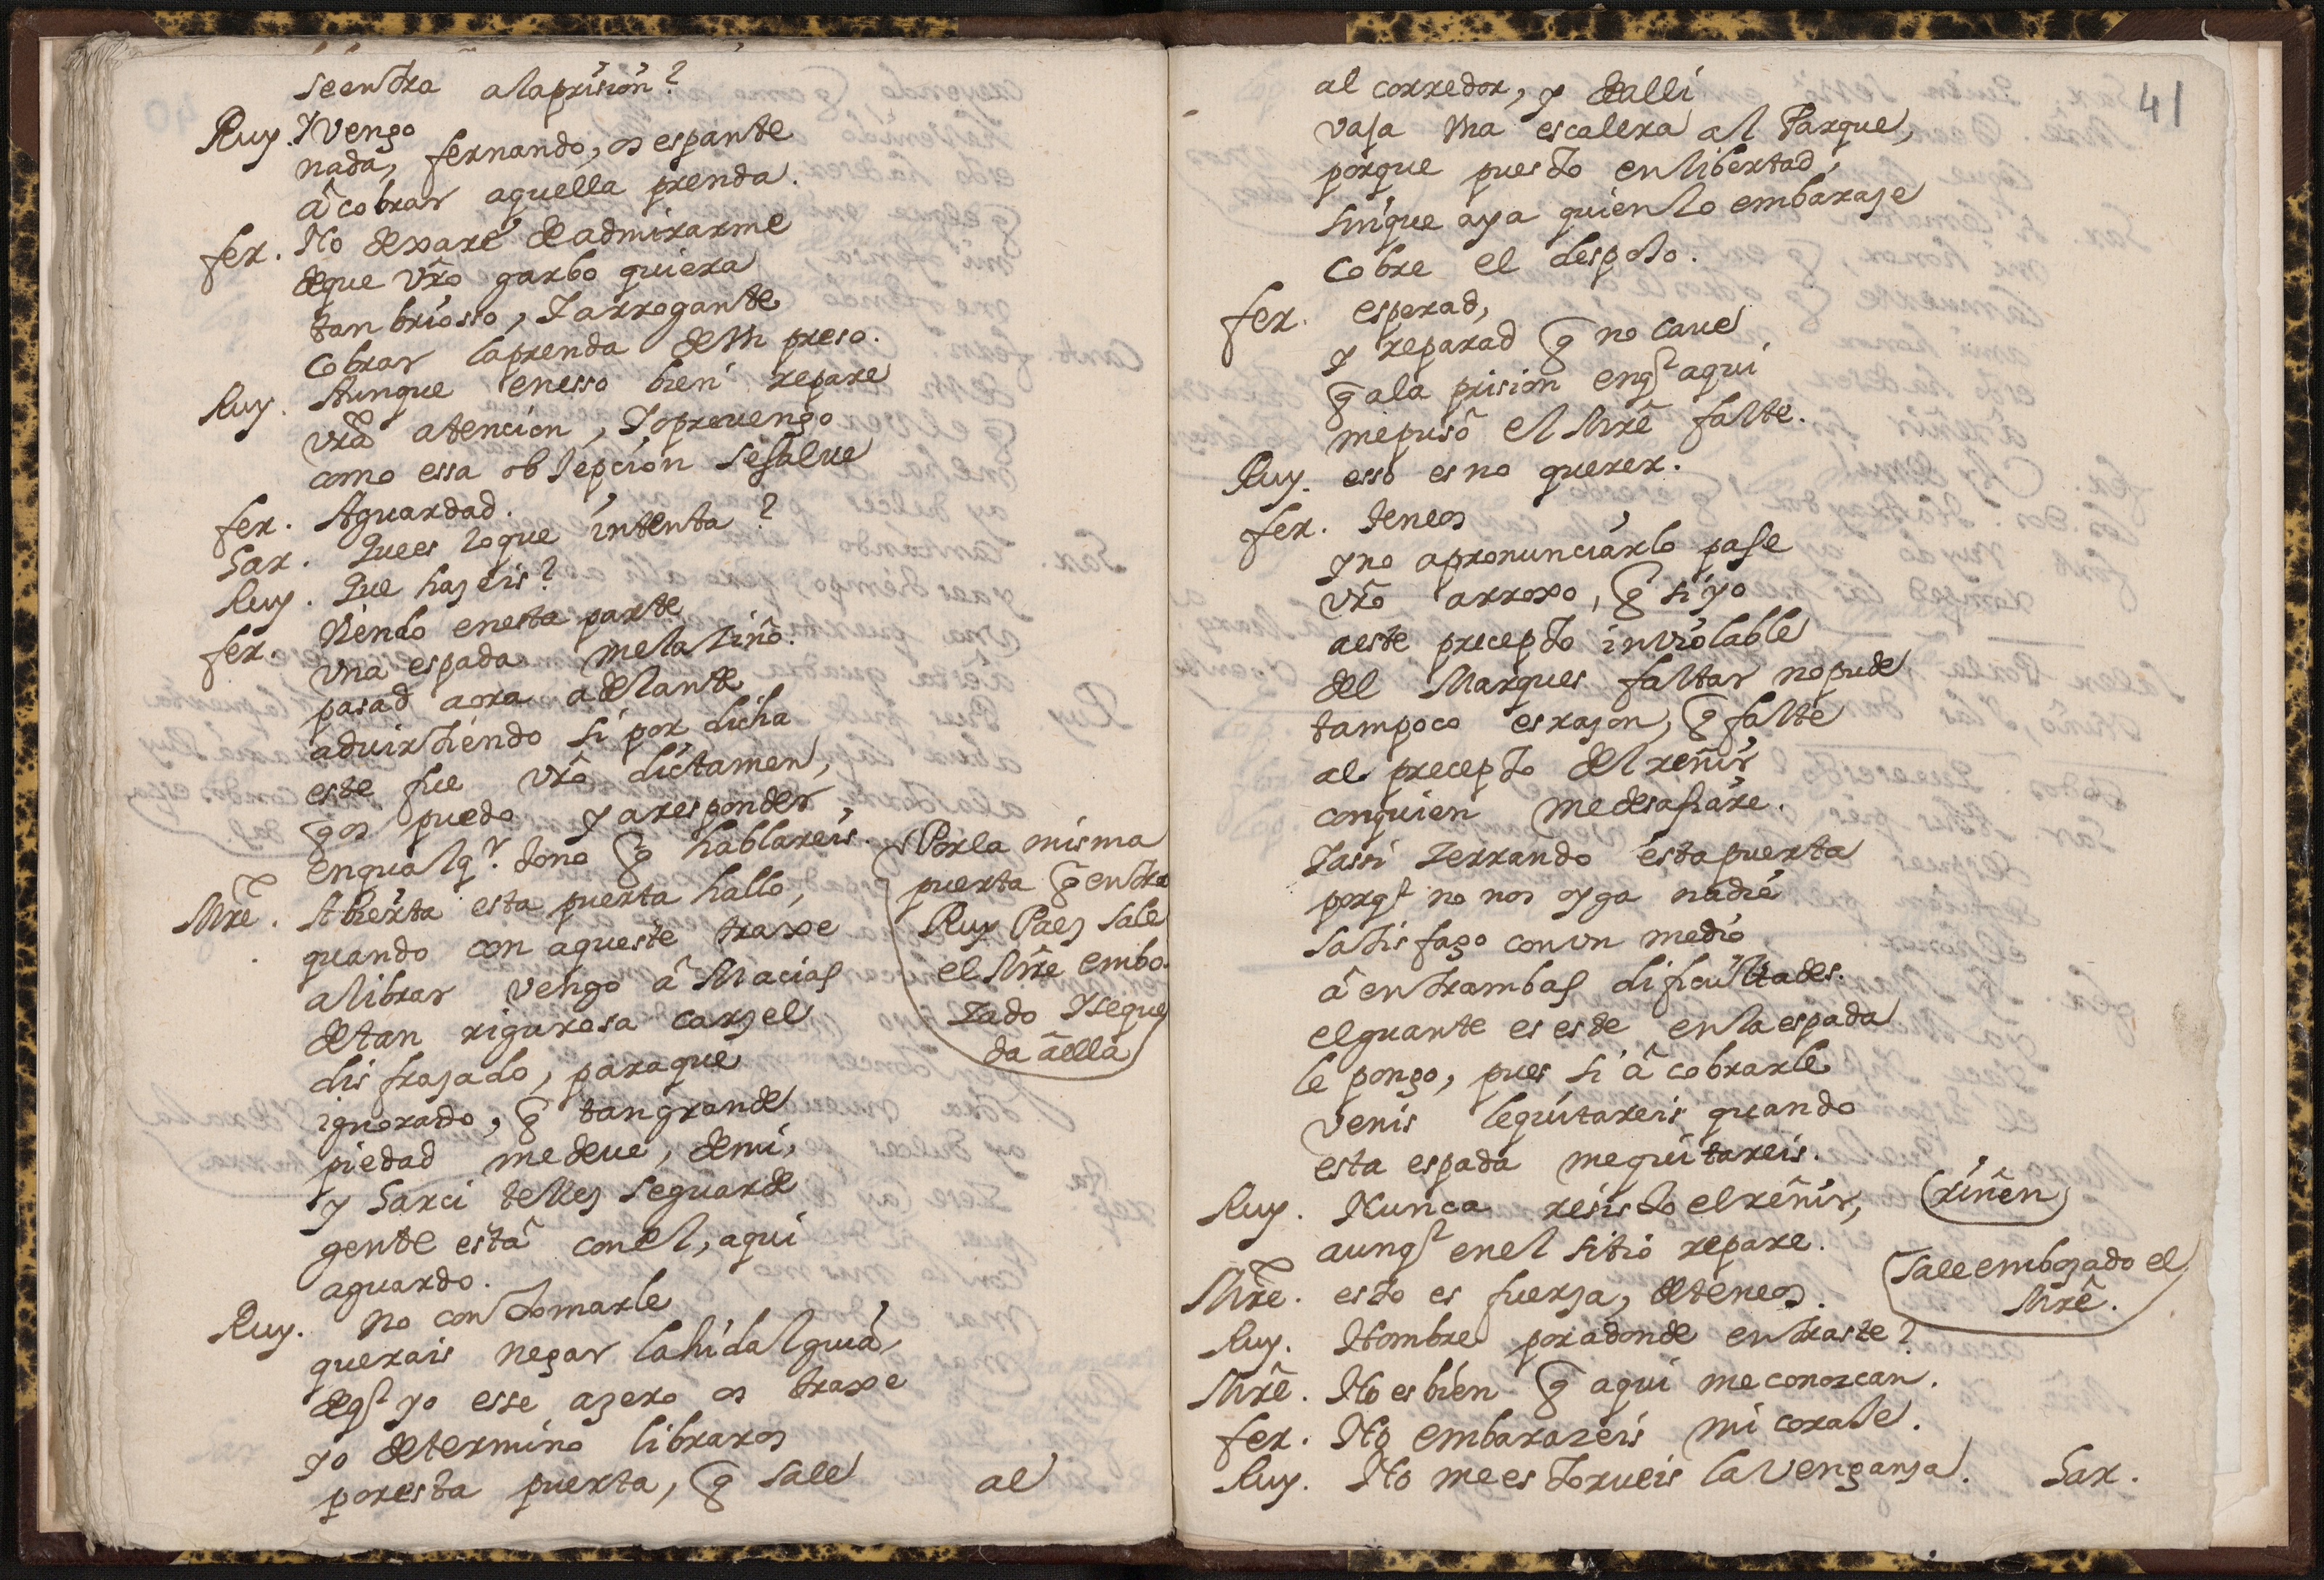 se entra a la prision?
Ruy. Y vengo
nada, fernando, os espante
â cobrar aquella prenda.
fer. No dexarè de admirarme
de que vr̃o garbo quiera
tan briosso, Y arrogante
cobrar la prenda de un preso.
Ruy. Aunque en esso bien repare
vr̃a atencion, Yo prevengo
como essa objepcion se salue
fer. Aguardad.
Gar. Que es lo que intenta?
Ruy. Que hazeis?
fer. Viendo en esta parte
vna espada me la ziño.
pasad aora adelante
aduirtiendo si por dicha
este fue vr̃o dictamen,
q̃ os puedo ya responder,
en qualqr. tono q̃ hablareis.
Mrẽ. Abierta esta puerta hallo,
quando con aqueste traxe
a librar vengo â Macias
de tan rigurosa carzel
disfrazado, para que
ignorado, q̃ tan grande
piedad me deue, de mi,
y Garci tellez se guarde
gente estâ con el, aqui
aguardo.
Ruy. No con tomarle
querais negar la hidalguia,
de q̃ yo esse azero os traxe
yo determino libraros
por esta puerta, q̃ sale
al
Por la misma
puerta q̃ entra
Ruy Paez sale
el Mrẽ embo-
zado Y se que
da â ella
41
al corredor, y de alli
vaja vna escalera al Parque,
porque puesto en libertad,
sin que aya quien lo embaraze
cobre el despojo.
fer. esperad,
y reparad q̃ no caue
q̃ a la prision en q̃ aqui
me pusô el Mrẽ falte.
Ruy. esso es no querer.
fer. teneos
y no a pronunciarlo pase
vr̃o arroxo, q̃ si yo
a este precepto inviolable
del Marques faltar no pude
tampoco es razon, q̃ falte
al precepto del reñir
con quien me desafiare.
Y assi zerrando esta puerta
porq̃ no nos oyga nadie
satisfago con vn medio
â entrambas dificultades.
el guante es este en la espada
le pongo, pues si â cobrarle
venis le quitareis quando
esta espada me quitareis.
Ruy. Nunca resisto el reñir, riñen
aunq̃ en el sitio repare.
Mrẽ. esto es fuerza, deteneos. Sale embozado el
Mrẽ.
Ruy. Hombre por adonde entraste?
Mrẽ. No es bien q̃ aqui me conozcan.
fer. No embarazeis mi coraje.
Ruy. No me estorueis la venganza. Gar.